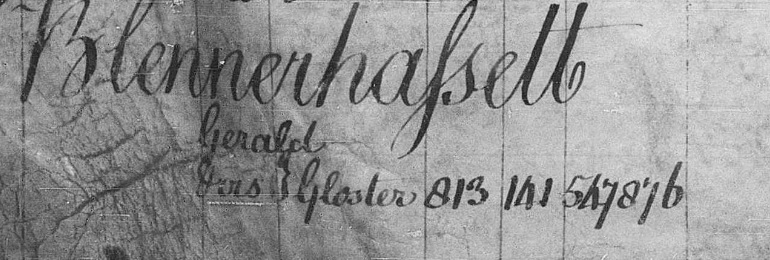 Blennerhaſsett
Gerald
Gloster 813 141 547876